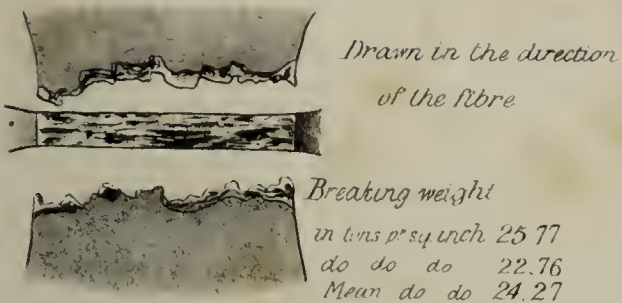 Drawn in the direction
of the fibre
Breaking weight
in tons pr sq. inch 25 77
do do do 22.76
Mean do do 24.27